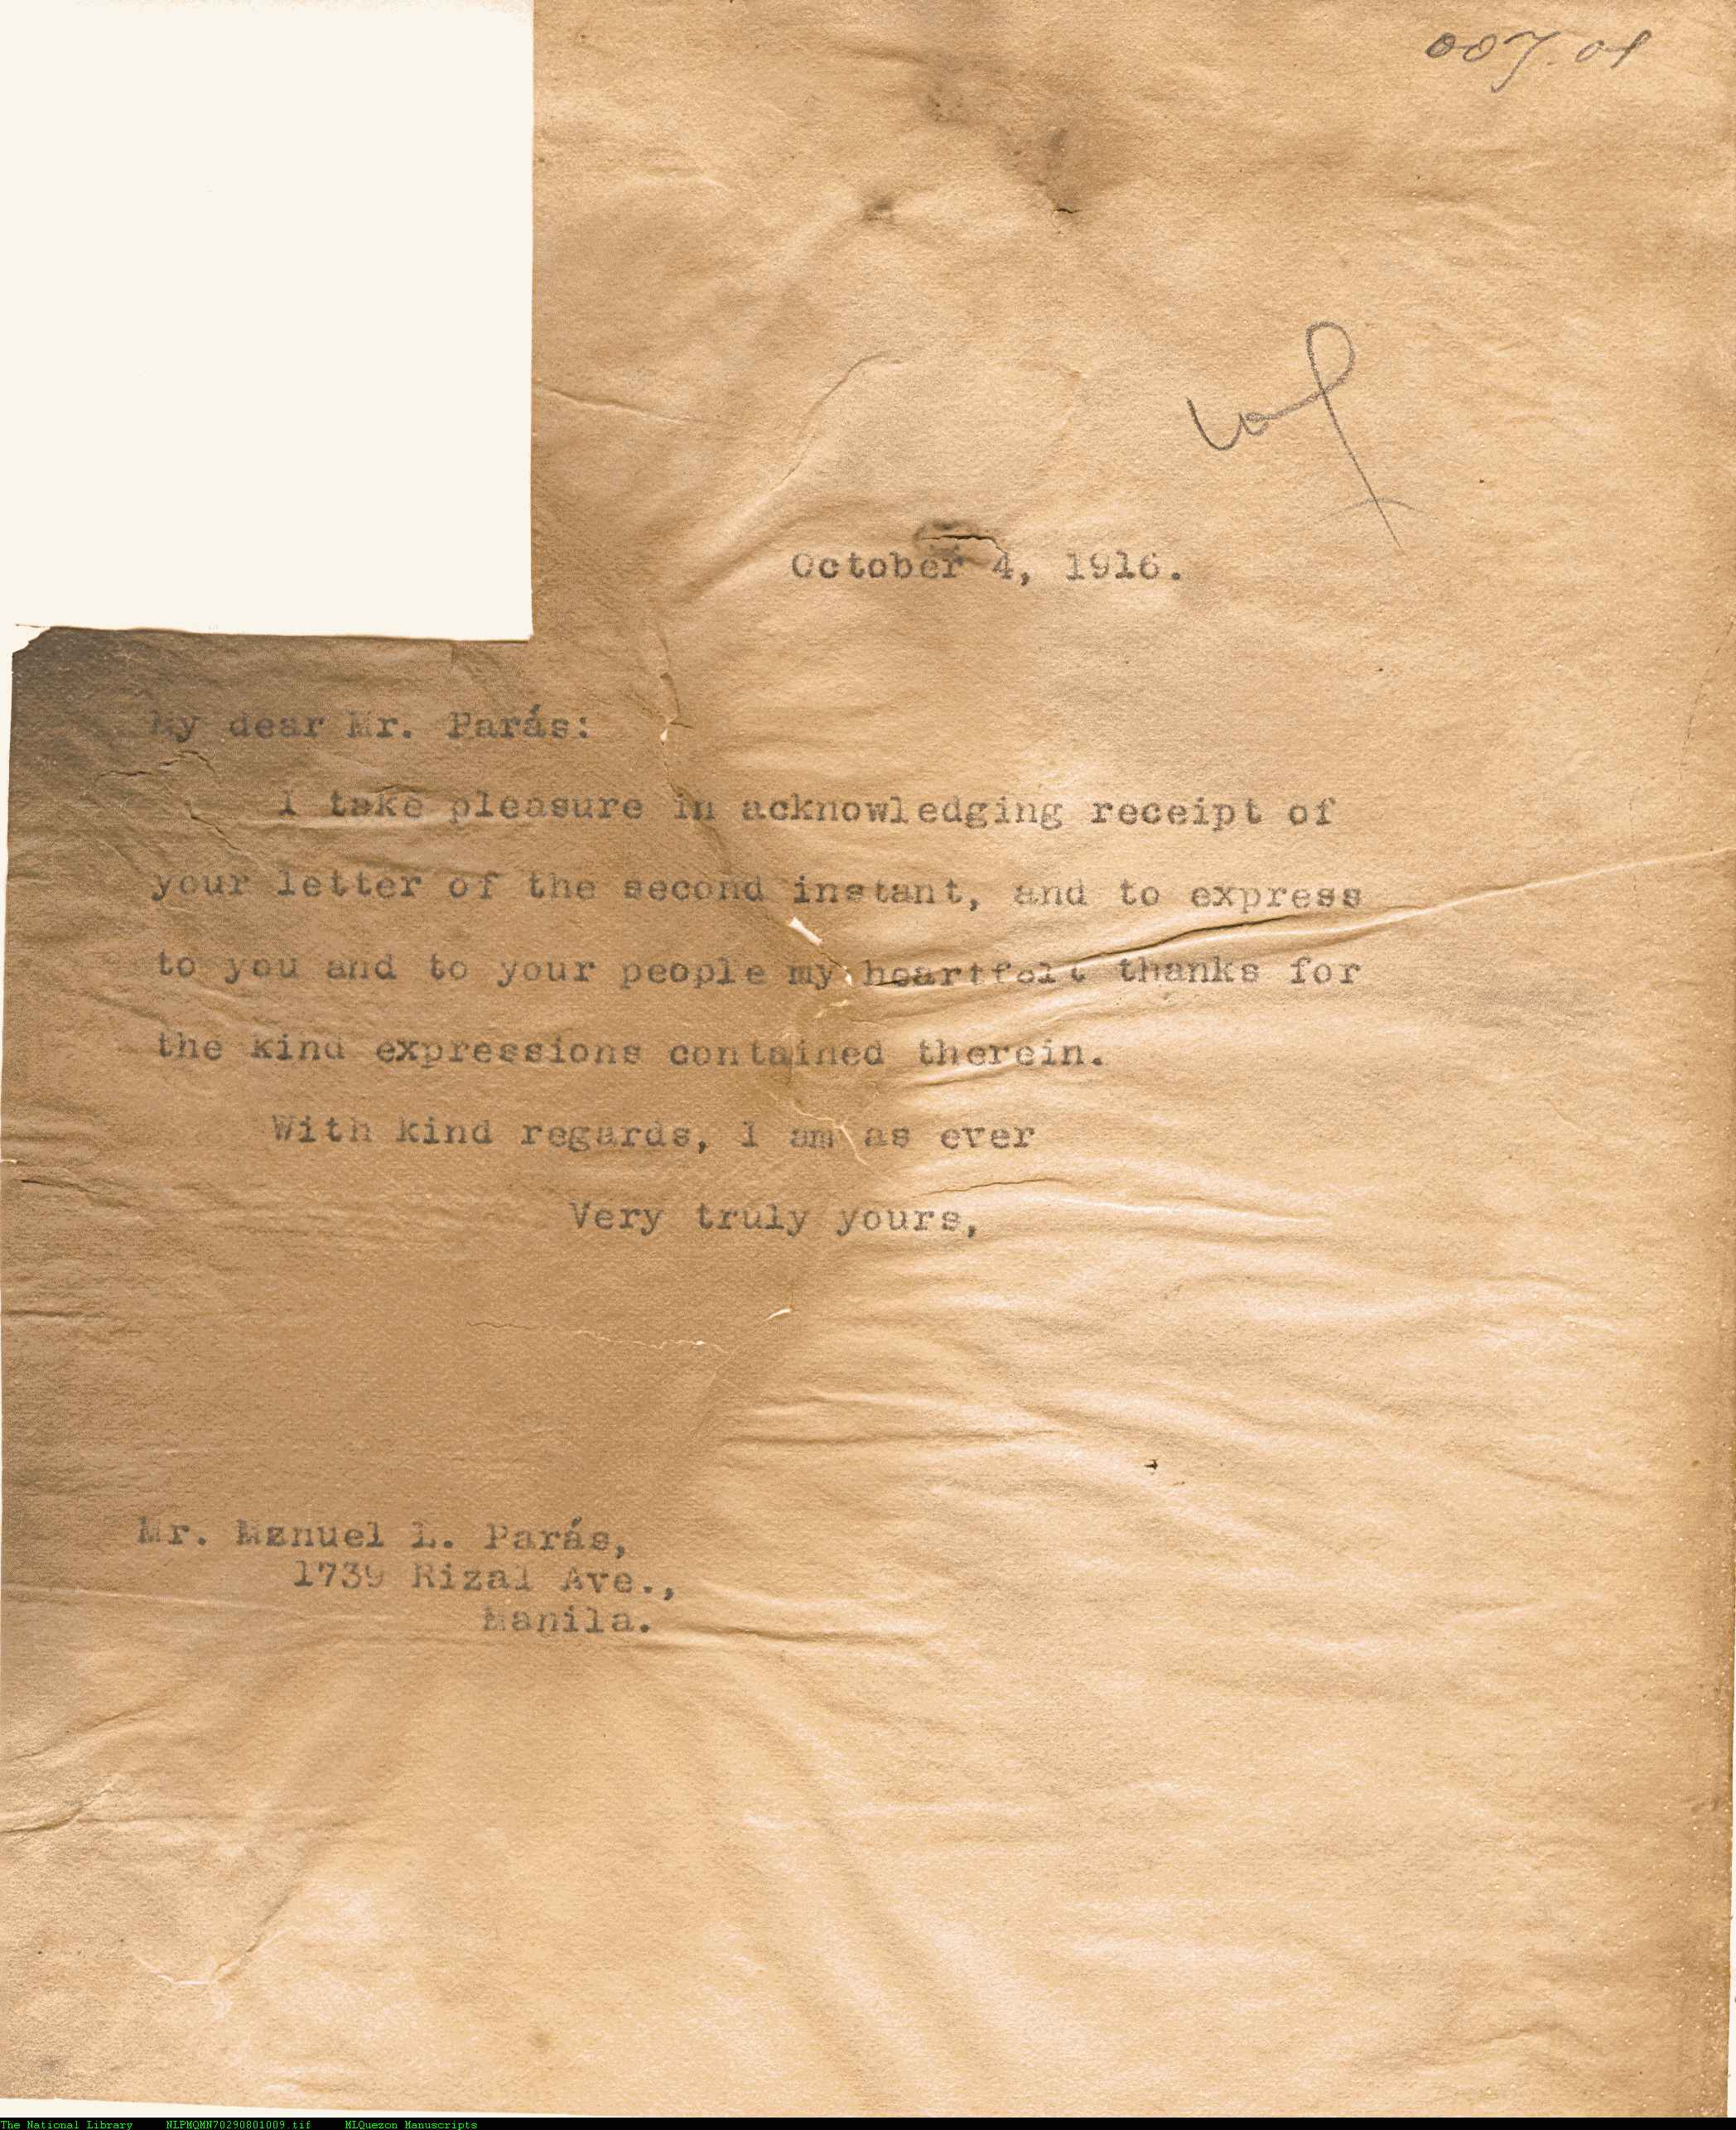 October 4, 1916.
My dear Mr. Parás:
I take pleasure in acknowledging receipt of
your letter of the second instant, and to express
to you and to your people my heartfelt thanks for
the kind expressions contained therein.
With kind regards, I am as ever
Very truly yours,
Mr. Manuel L. Parás,
1739 Rizal Ave.,
Manila.
The National Library NLPMQMN70290801009.tif MLQuezon Manuscripts